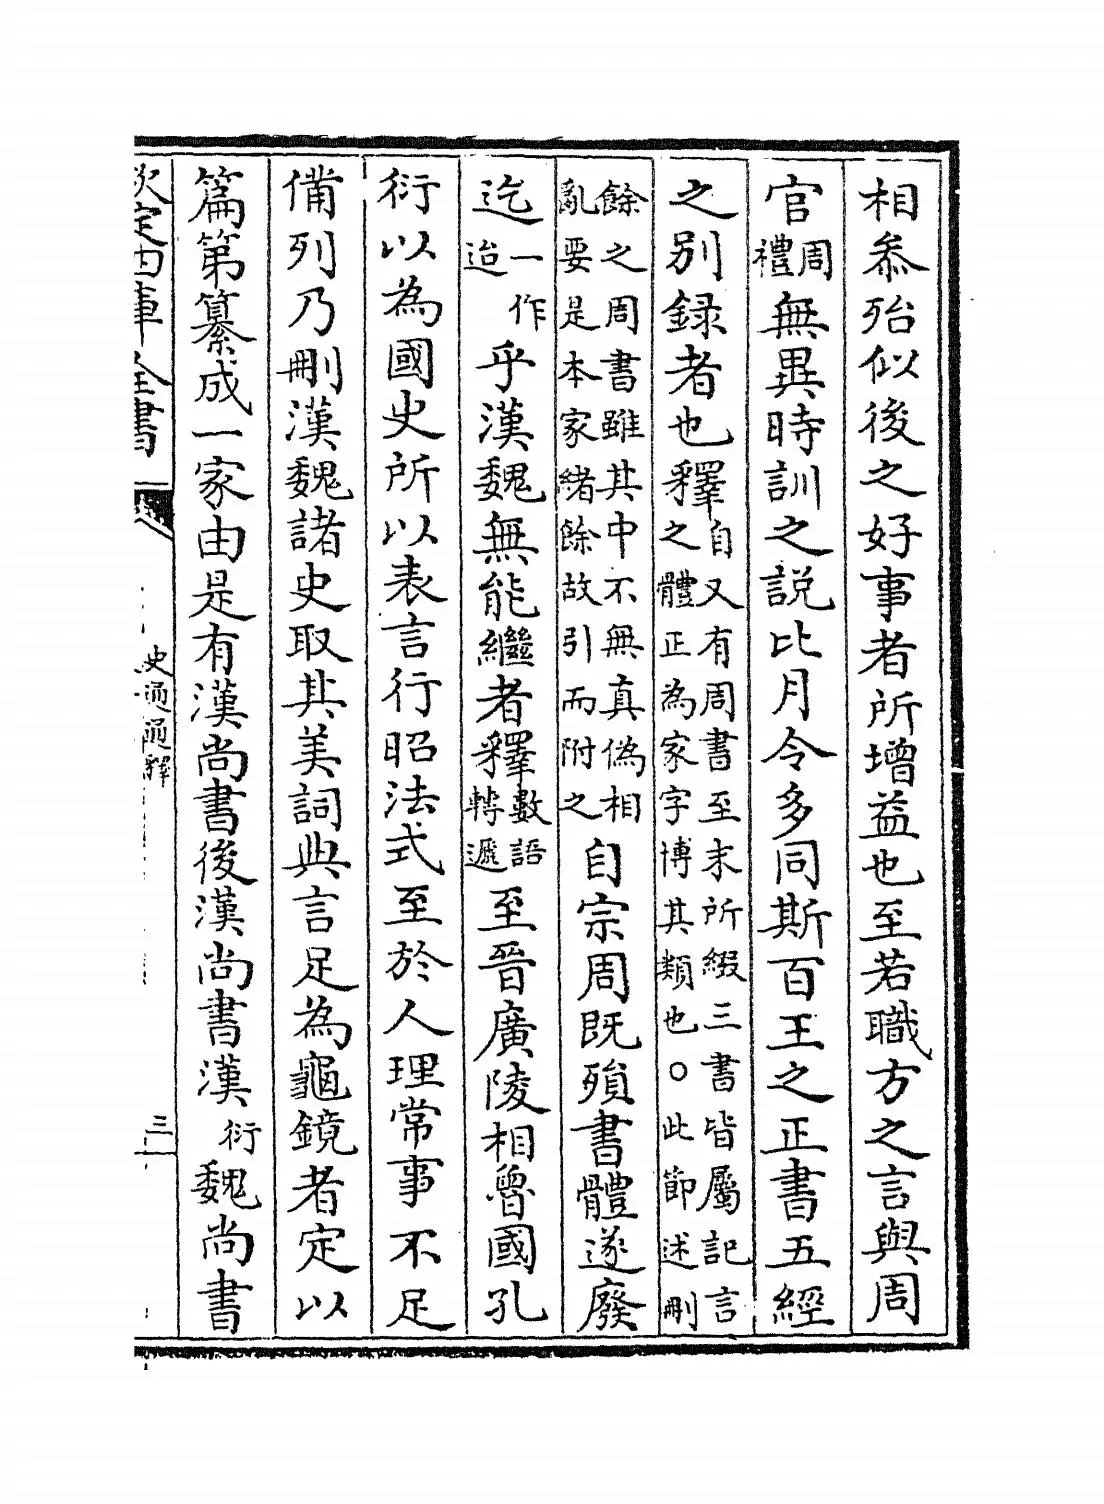 相參殆似後之好事者所增益也至若職方之言與周
官周禮無異時訓之説比月令多同斯百王之正書五經
之别録者也釋自又有周書至末所綴三書皆屬記言之體正為家字博其類也○此節述刪
餘之周書雖其中不無真偽相亂要是本家緒餘故引而附之自宗周既殞書體遂廢
迄一作迨乎漢魏無能繼者釋數語轉遞至晉廣陵相魯國孔
衍以為國史所以表言行昭法式至於人理常事不足
備列乃刪漢魏諸史取其美詞典言足為龜鏡者定以
篇第纂成一家由是有漢尚書後漢尚書漢衍魏尚書
欽定四庫全書
史通通釋
三